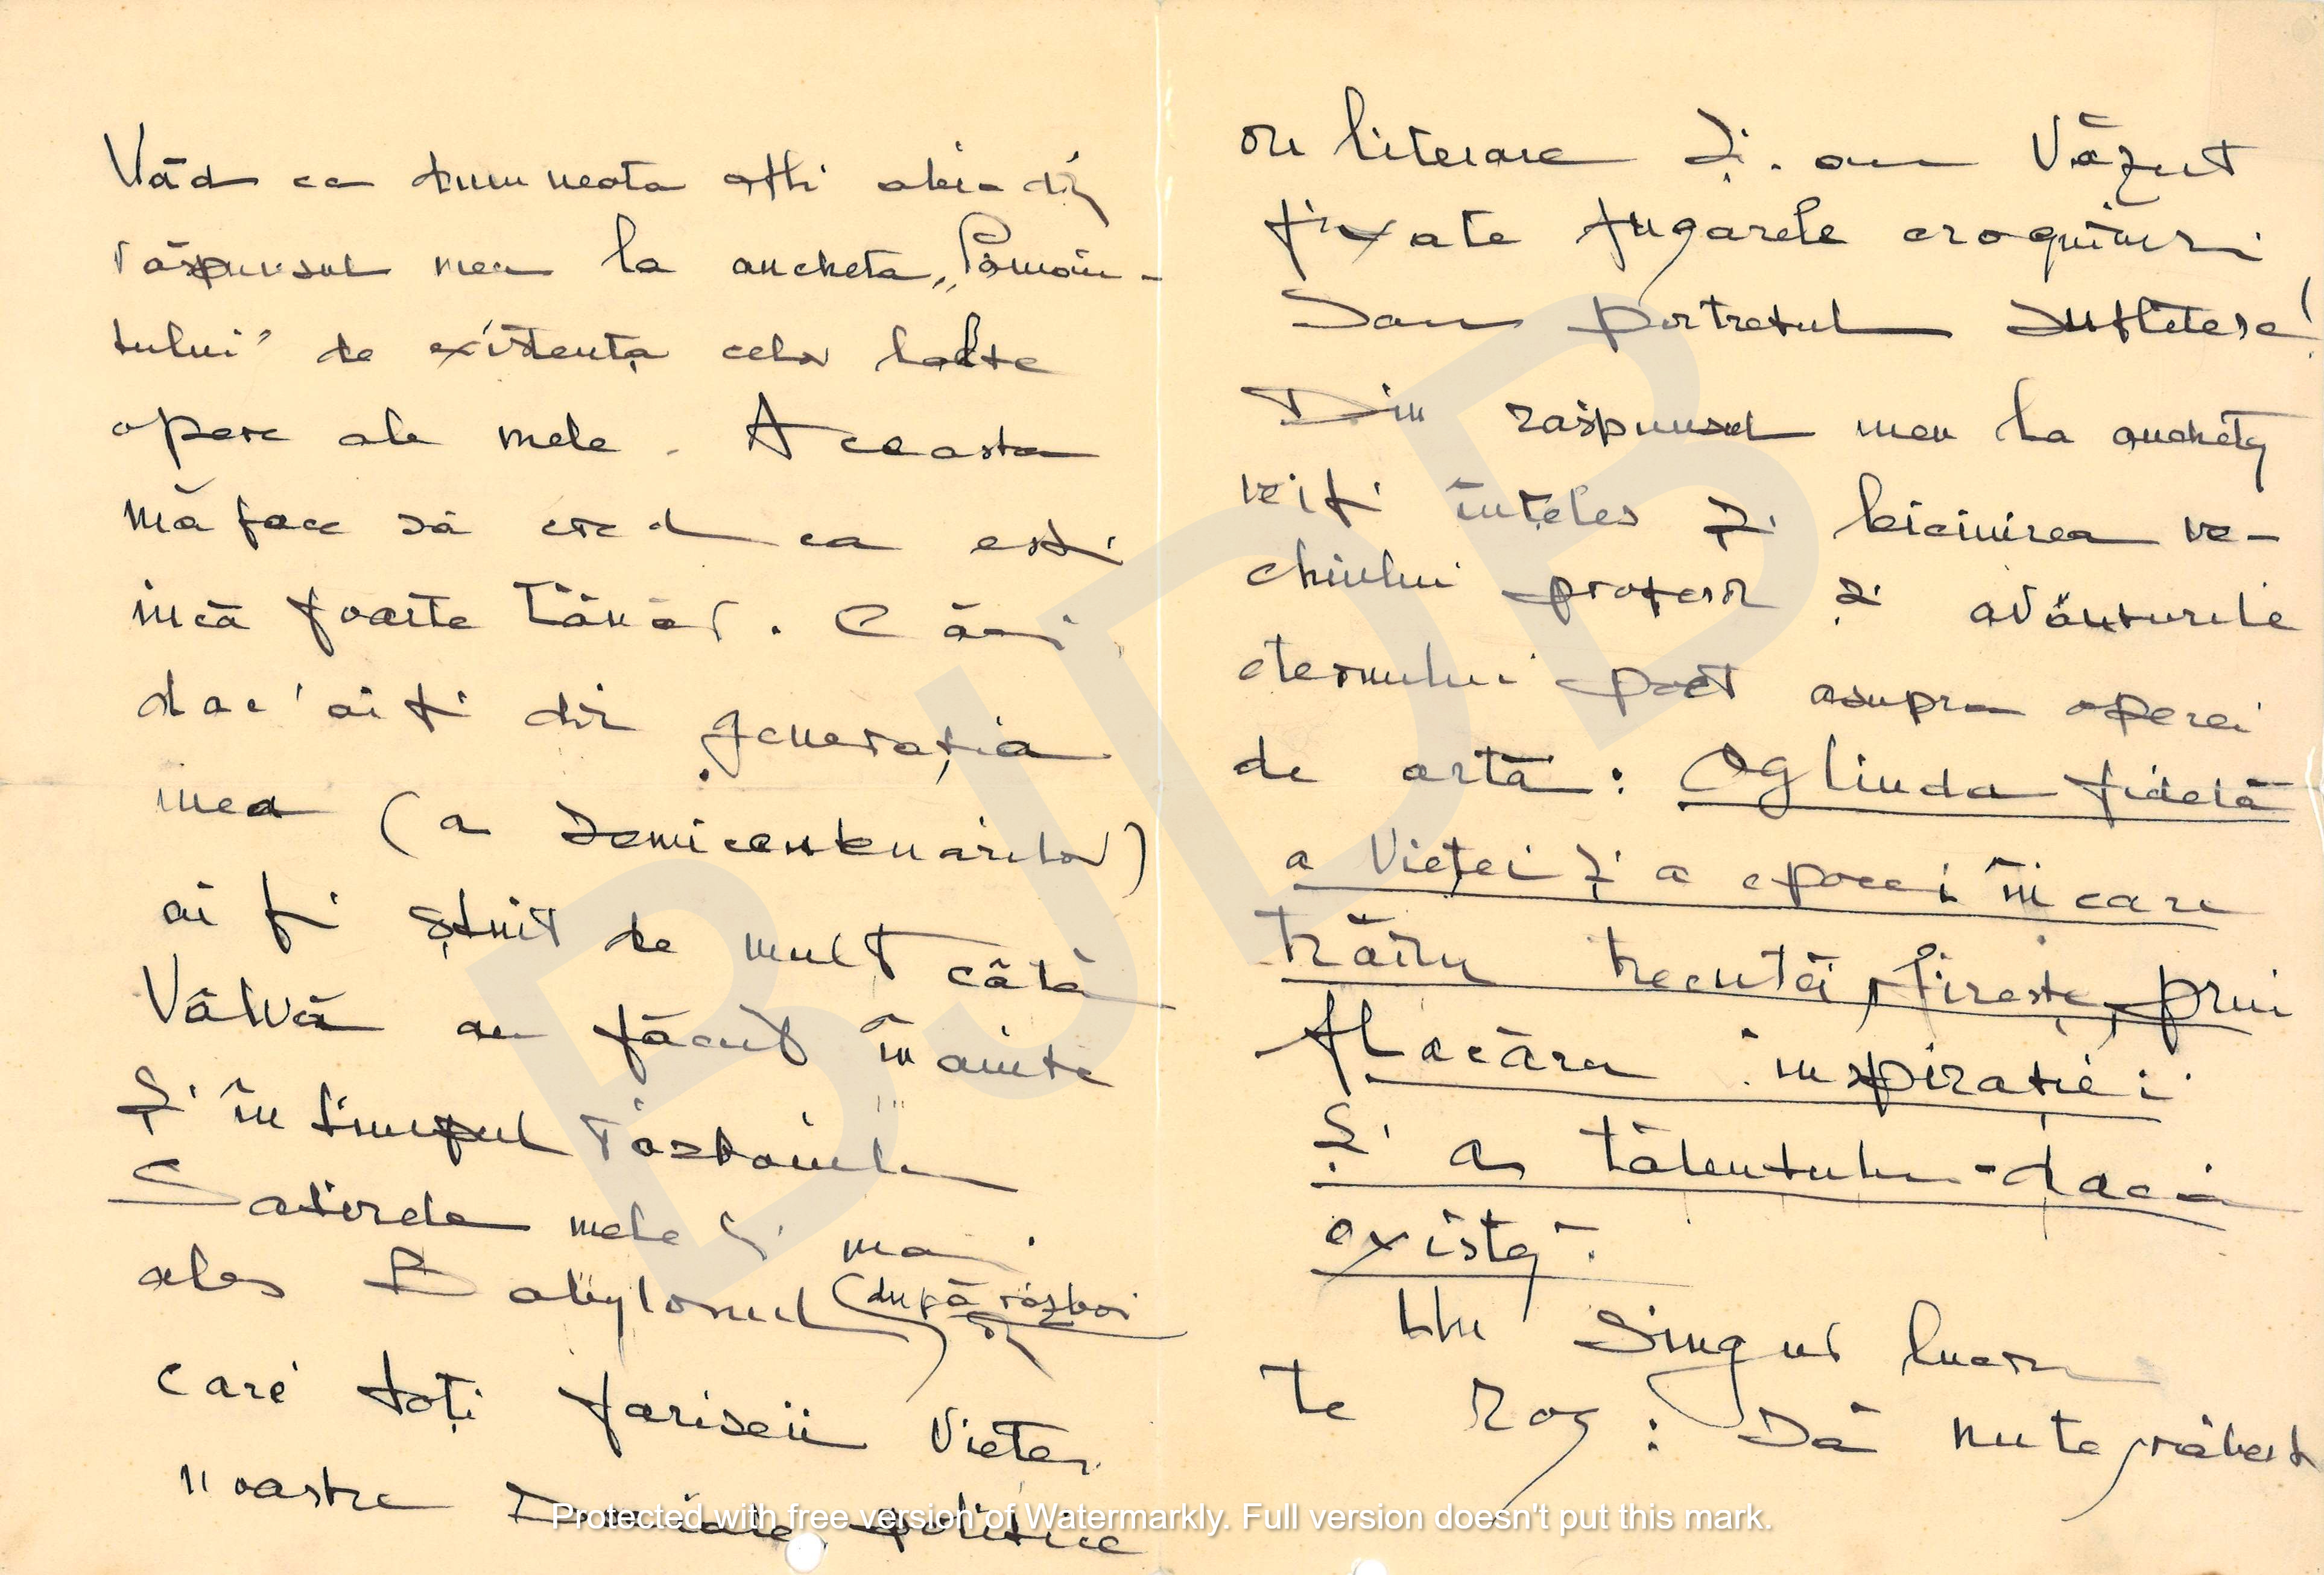 Văd ca dumneata afli abia din
răspunsul meu la ancheta „Pămân-
tului" de existența celor lalte
opere ale mele. Aceasta
mă face să cred ca ești
încă foarte tânăr. Căci
dac'ai fi din generația
mea (a semicentenarilor)
ai fi știut de mult câtă
Vâlvă au făcut înainte
și în timpul războiului
Satirele mele și mai
ales Babylonul (după război)
în
care toți fariseii Vieței
noastre sociale, politice
ori literare și-au Văzut
fixate fugarele croquiuri
sau portretul sufletesc!
Din raspunsul meu la anchetă
vei fi înțeles și biciuirea ve-
chiului profesor și avânturile
eternului poet asupra operei
de artă: Oglinda fidelă
a Vieței și a epocei în care
trăim trecută, firește, prin
flacăra inspirației
și a talentului - dacă
există.
Un singur lucru
te rog: Să nu te grăbești
BJDB
Protected with free version of Watermarkly. Full version doesn't put this mark.